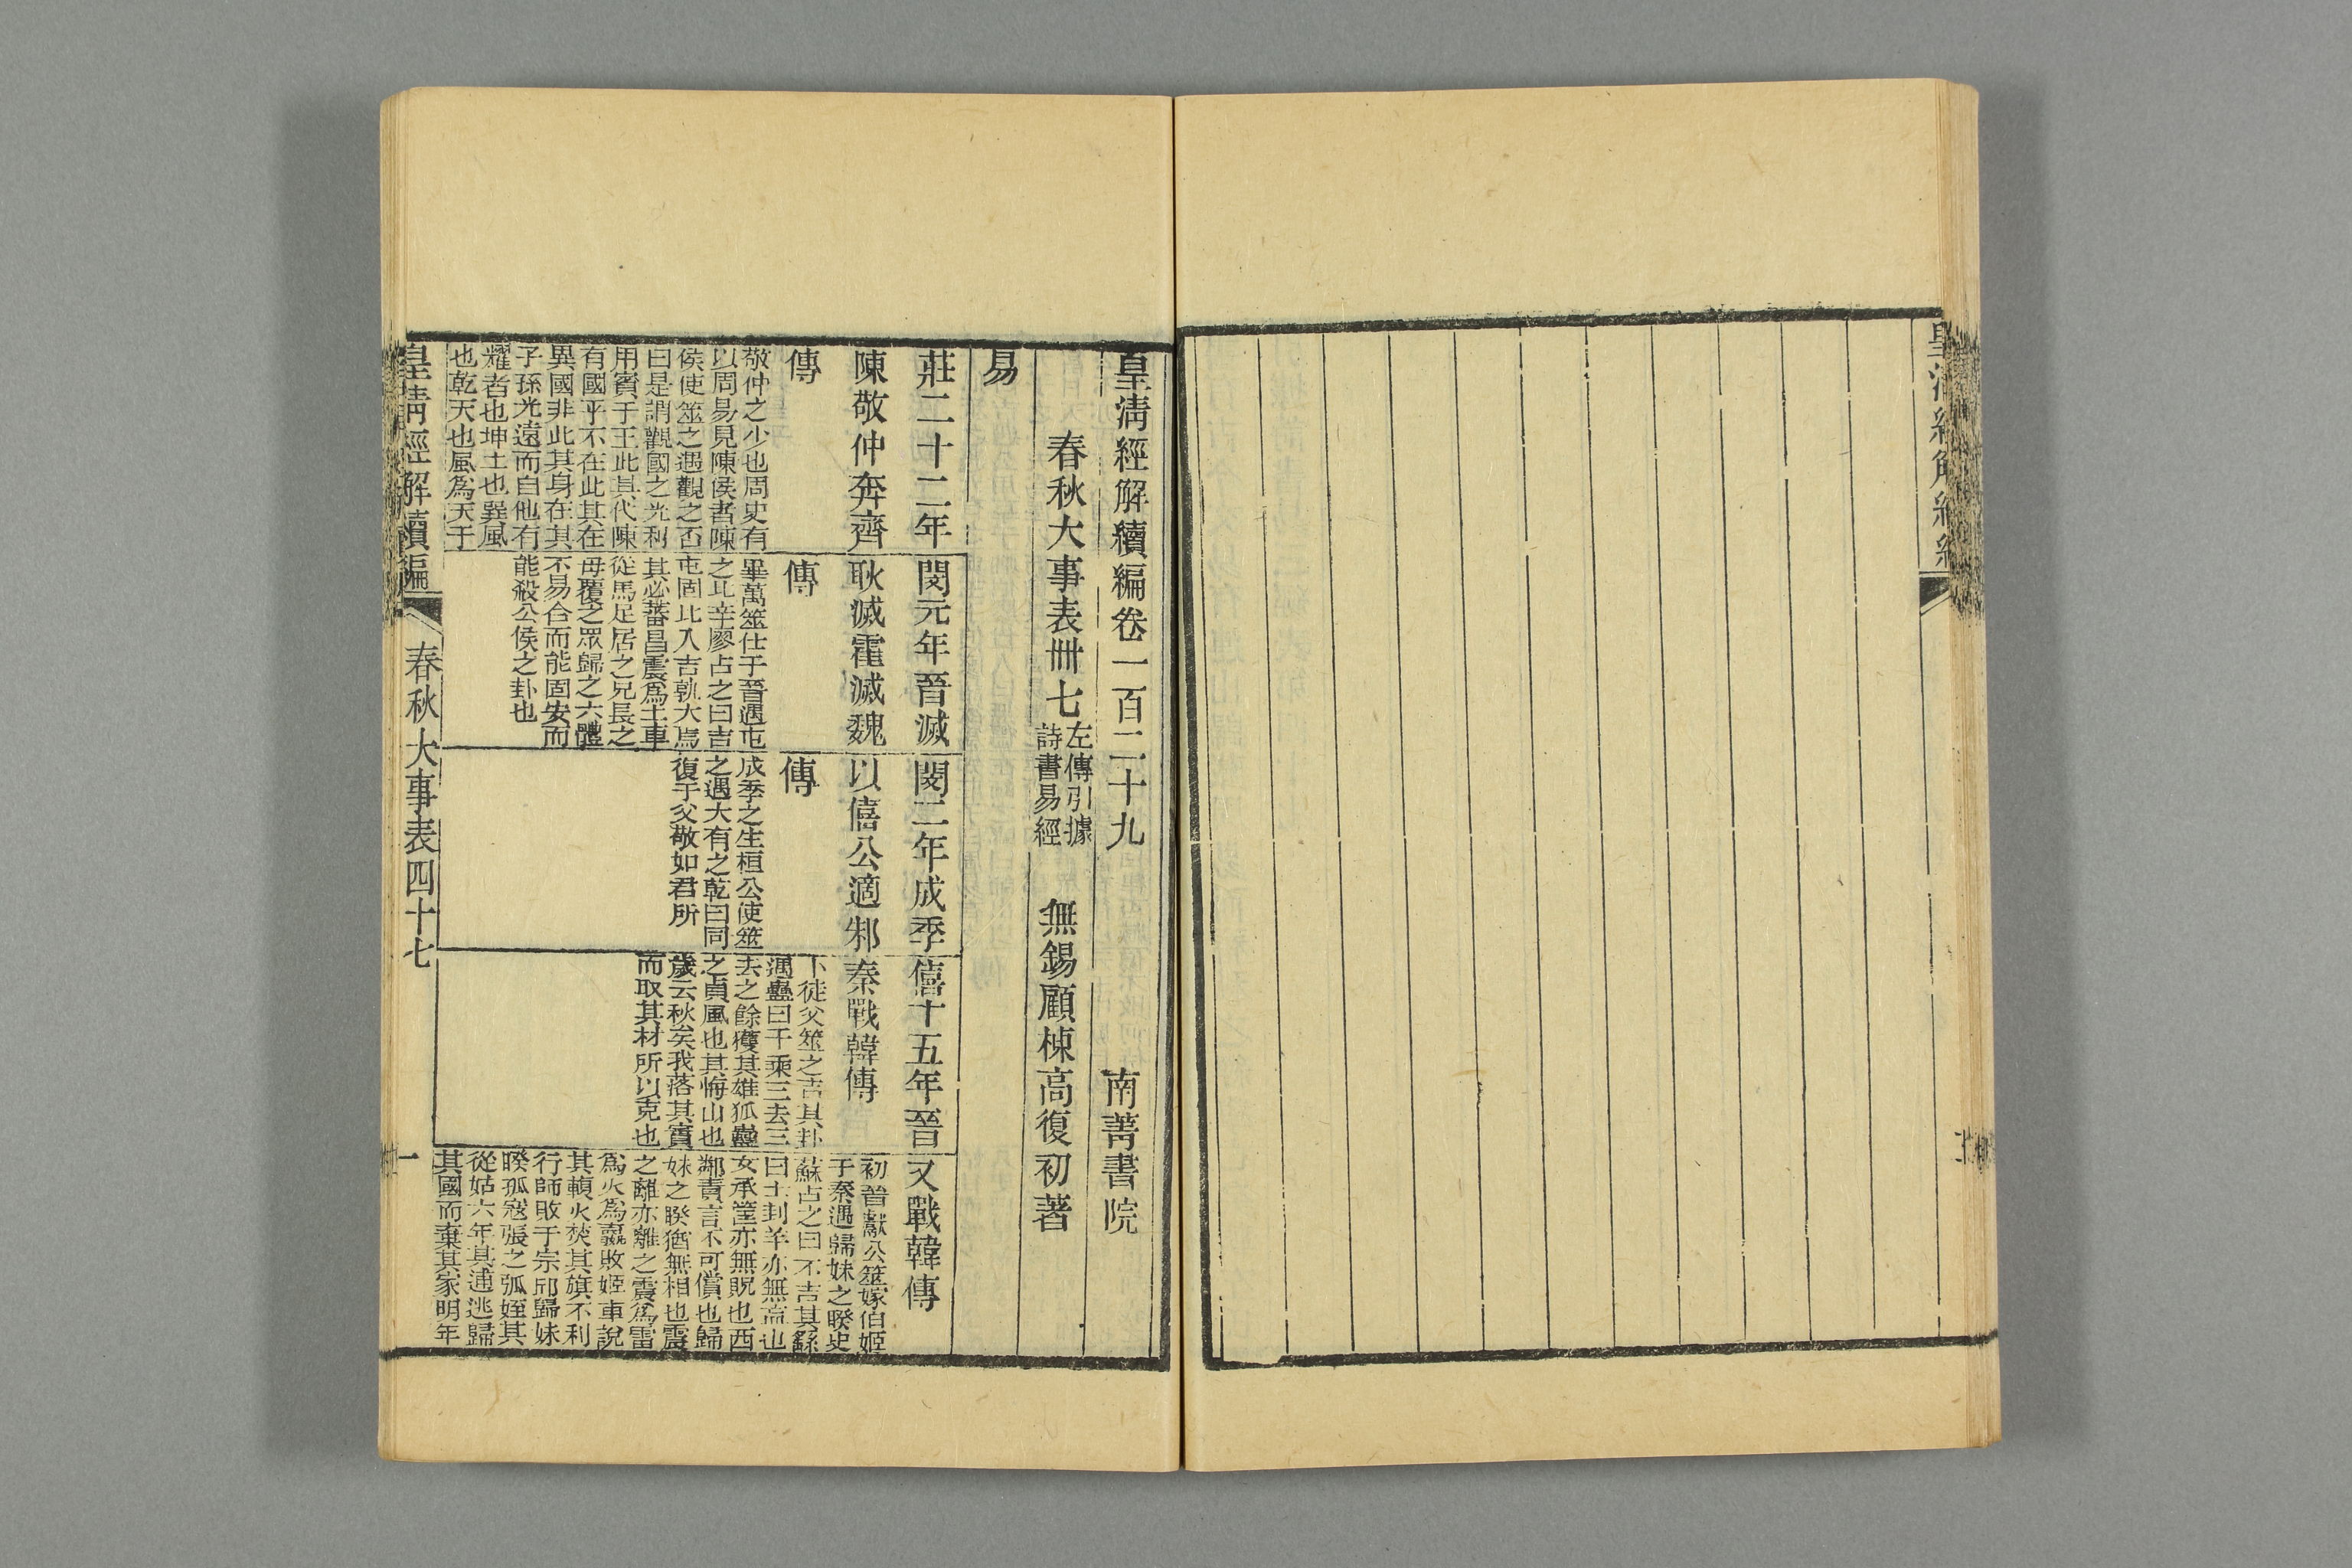 皇清經解續編卷一百二十九
南菁書院
春秋大事表卌七
左傳引據
詩書易經
無錫顧棟高復初著
易
莊二十二年
陳敬仲奔齊
傳
敬仲之少也周史有
以周易見陳侯者陳
侯使筮之遇觀之否
曰是謂觀國之光利
用賓于王此其代陳
有國乎不在此其在
異國非此其身在其
子孫光遠而自他有
耀者也坤土也巽風
也乾天也風爲天于
閔元年晉滅
耿滅霍滅魏
傳
畢萬筮仕于晉遇屯
之比辛廖占之曰吉
屯固比入吉孰大焉
其必蕃昌震爲土車
從馬足居之兄長之
母覆之眾歸之六體
不易合而能固安而
能殺公侯之卦也
閔二年成季
以僖公適邾
傳
成季之生桓公使筮
之遇大有之乾曰同
復于父敬如君所
僖十五年晉
秦戰韓傳
卜徒父筮之吉其卦
遇蠱曰千乘三去三
去之餘獲其雄狐蠱
之貞風也其悔山也
歲云秋矣我落其實
而取其材所以克也
又戰韓傳
初晉獻公筮嫁伯姬
于秦遇歸妹之睽史
蘇占之曰不吉其繇
曰士刲羊亦無衁也
女承筐亦無貺也西
鄰責言不可償也歸
妹之睽猶無相也震
之離亦離之震爲雷
爲火爲嬴敗姬車說
其輹火焚其旗不利
行師敗于宗邱歸妹
睽孤寇張之弧姪其
從姑六年其逋逃歸
其國而棄其家明年
皇清經解續編
春秋大事表四十七
一